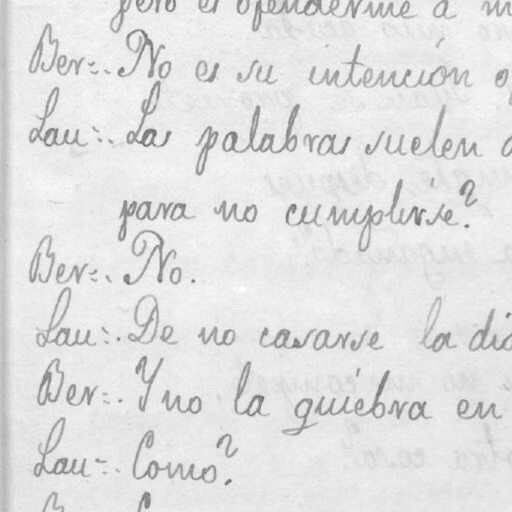 pero es ofenderme a
Ber=. No es su intención
Lau=. Las palabras suelen
para no cumplirse?
Ber=. No.
Lau=. De no casarse la
Ber=. Y no la quiebra en
Lau=. Como?